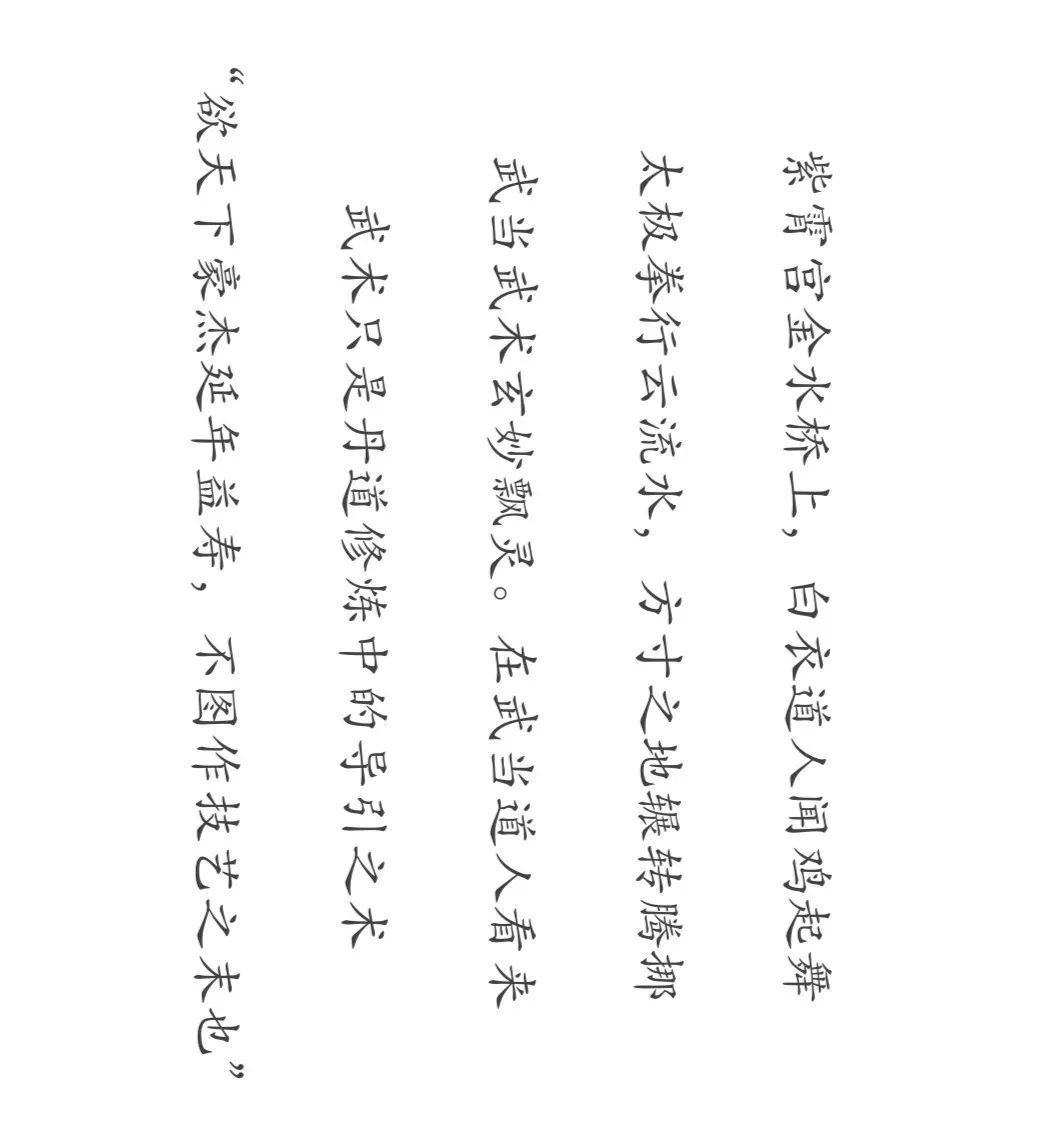 紫霄宫金水桥上，白衣道人闻鸡起舞
太极拳行云流水，方寸之地辗转腾挪
武当武术玄妙飘灵。在武当道人看来
武术只是丹道修炼中的导引之术
“欲天下豪杰延年益寿，不图作技艺之末也”